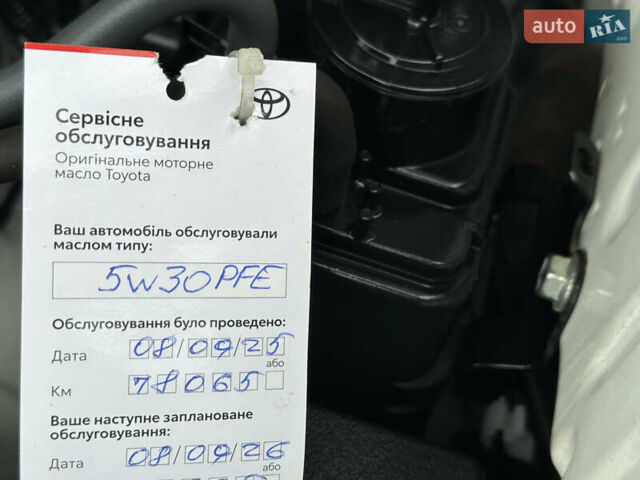 auto RIA.com
Сервісне
обслуговування
Оригінальне моторне
масло Toyota
Ваш автомобіль обслуговували
маслом типу:
5W30PFE
Обслуговування було проведено:
Дата 08/09/25
або
Км 78065
Ваше наступне заплановане
обслуговування:
Дата 08/09/26
або